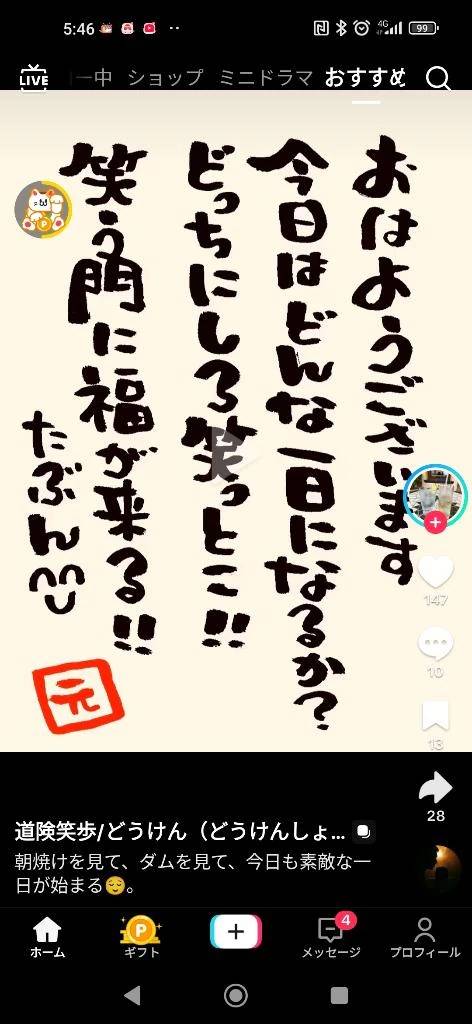 5:46
4G
99
LIVE
ー中 ショップ ミニドラマ おすすめ
おはようございます
今日はどんな一日になるか?
どっちにしろ笑っとこ!!
笑う門に福が来る!!
たぶん
元
P
147
10
13
28
道険笑歩/どうけん（どうけんしょ...
朝焼けを見て、ダムを見て、今日も素敵な一
日が始まる😌。
ホーム
P
ギフト
4
メッセージ
プロフィール